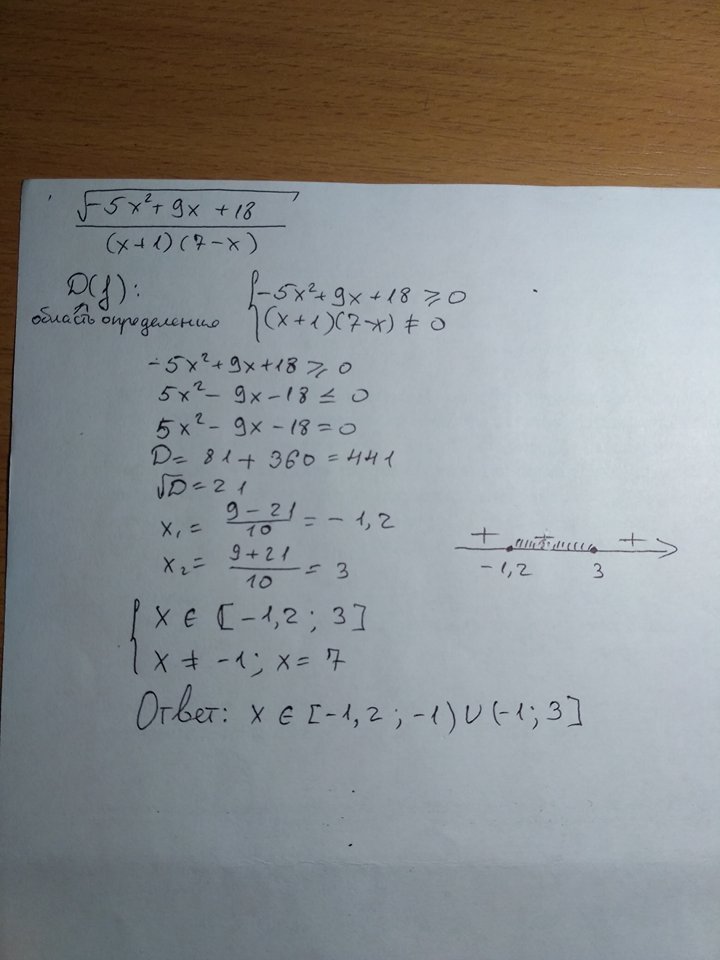 √-5x²+9x+18
(x+1)(7-x)
D(f):
область определения
{-5x²+9x+18 ≥ 0
(x+1)(7-x) ≠ 0
-5x²+9x+18 ≥ 0
5x² - 9x - 18 ≤ 0
5x² - 9x - 18 = 0
D = 81 + 360 = 441
√D = 21
x₁ = 9-21/10 = -1,2
x₂ = 9+21/10 = 3
+ - +
-1,2 3
{x ∈ [-1,2 ; 3]
x ≠ -1; x = 7
Ответ: x ∈ [-1,2 ; -1) ∪ (-1; 3]